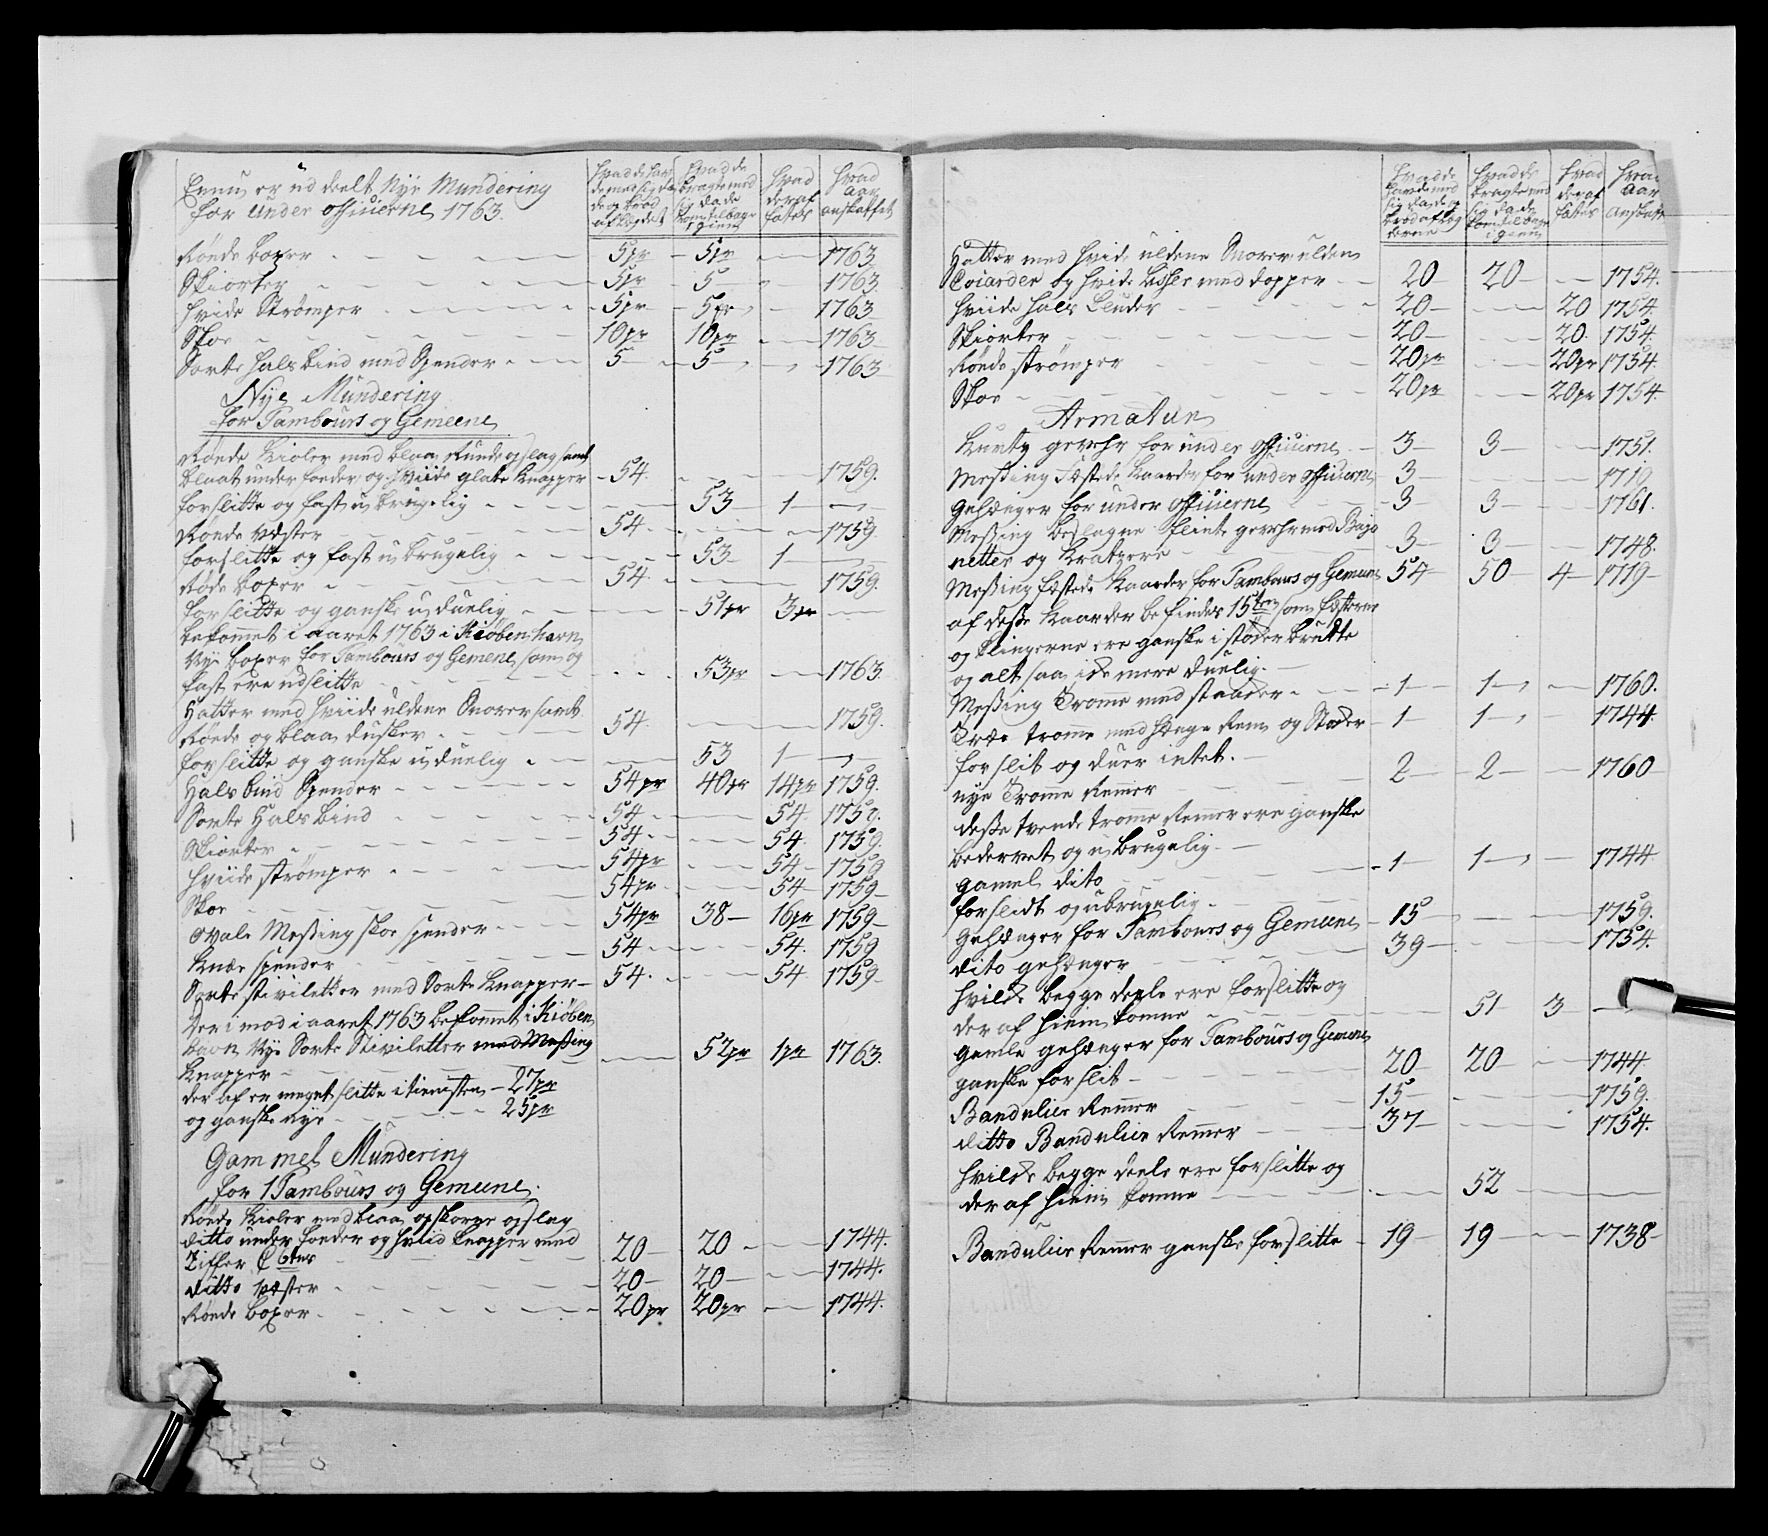 Ennu er ud deelt Nye Mundering
for under officierne 1763.
Hvad de hav
de med sig da
de og brod
af Lægdet
Hvad de
bragte med
sig da de
kom tilbage
igien
Hvad
deraf
fattes
Hvad
Aar
anskaffet
Røede boxer 5pr 5pr 1763
Skiorter 5pr 5 1763
Hvide Strømper 5pr 5pr 1763
Skoe 10pr 10pr 1763
Sorte Halsbind med Spender 5 5 1763
Nye Mundering
for Tambours og Gemeene
Røede Kioler med blaa Runde opslag samt
blaat under foeder og hviide glate Knapper 54. 1759.
forslitte og fast u brugelig 53 1
Røede væster 54. 1759.
forslitte og fast u brugelig 53 1
Røde boxer 54. 1759.
forslitte og ganske u duelig 51pr 3pr
bekommet i aaret 1763 i Kiøbenhavn
Nye boxer for Tambours og Gemene som og
fast ere udslitte 53pr 1763.
Hatter med hviide uldene Snorer samt
Røede og blaa dusker 54. 1759.
forslitte og ganske u duelig 53 1
Halsbind Spender 54pr 40pr 14pr 1759.
Sorte Halsbind 54 54. 1759.
Skiorter 54 54. 1759.
Hviide strømper 54pr 54 1759
Skoe 54pr 54 1759
Ovale Messing skoe spender 54pr 38 16pr 1759
Knæe spender 54 54. 1759
Sorte stiviletter med Sorte Knapper 54. 54 1759
Der imod i aaret 1763 bekommet i Kiøben
havn Nye Sorte Stiviletter med Messing
Knapper 52pr 1pr 1763.
der af er meget slitte i tienisten 27pr
og ganske nye 25pr
Gammel Mundering
for 1 Tambours og Gemeene.
Røede Kioler med blaa opskorne opslag
ditto under foeder og hviid Knapper med
Ziffer C 6tus 20 20 1744.
ditto væster 20 20 1744.
Røede boxer 20pr 20pr 1744.
Hvad de
havde med
sig da de og
brod af Læg
derne
Hvad de
bragte med
sig da de
kom tilbage
igien
Hvad
deraf
fattes
Hvad
Aar
Anskaffet
Hatter med hvide uldene Snorer ulden
Coiarder og hvide Lidser med dopper 20 20 1754.
Hviide Hals Kluder 20 20 1754.
Skiorter 20 20. 1754.
Røede strømper 20pr 20pr 1754.
Skoe 20pr 20pr 1754.
Armatur
Kunty gevehr for under officierne 3 3 1751.
Messing Fæstede Kaarder for under officierne 3 1719
Gehænger for under officierne 3 3 1761.
Messing beslagne flinte gevehr med Bajo
netter og Kratzere 3 3 1748.
Messing fæstede Kaarder for Tambours og Gemene 54 50 4 1719
af desse Kaarder befindes 15ten som Fæsterne
og Klingerne ere ganske i støder brudte
og altsaa icke mere duelig.
Messing Tromme med staader 1 1 1760.
Træe tromme med hænge Rem og Stoder 1 1 1744.
forslit og duer intet.
nye Tromme Remer 2 2 1760
desse tvende tromme Remer ere ganske
bedervet og u brugelig.
gamel dito 1 1 1744
forslidt og ubrugelig.
Gehænger for Tambours og Gemene 15 1759.
dito gehænger 39 1754.
hvilcke begge deele ere forslitte og
der af hiem komne 51 3
Gamle gehænger for Tambours og Gemene
ganske forslit 20 20 1744
Bandulier Remer 15 1759.
ditto Bandulier Remer 37 1754.
hvilcke begge deele ere forslitte og
der af hiem komne 52
Bandulier Remer ganske forslitte 19 19 1738